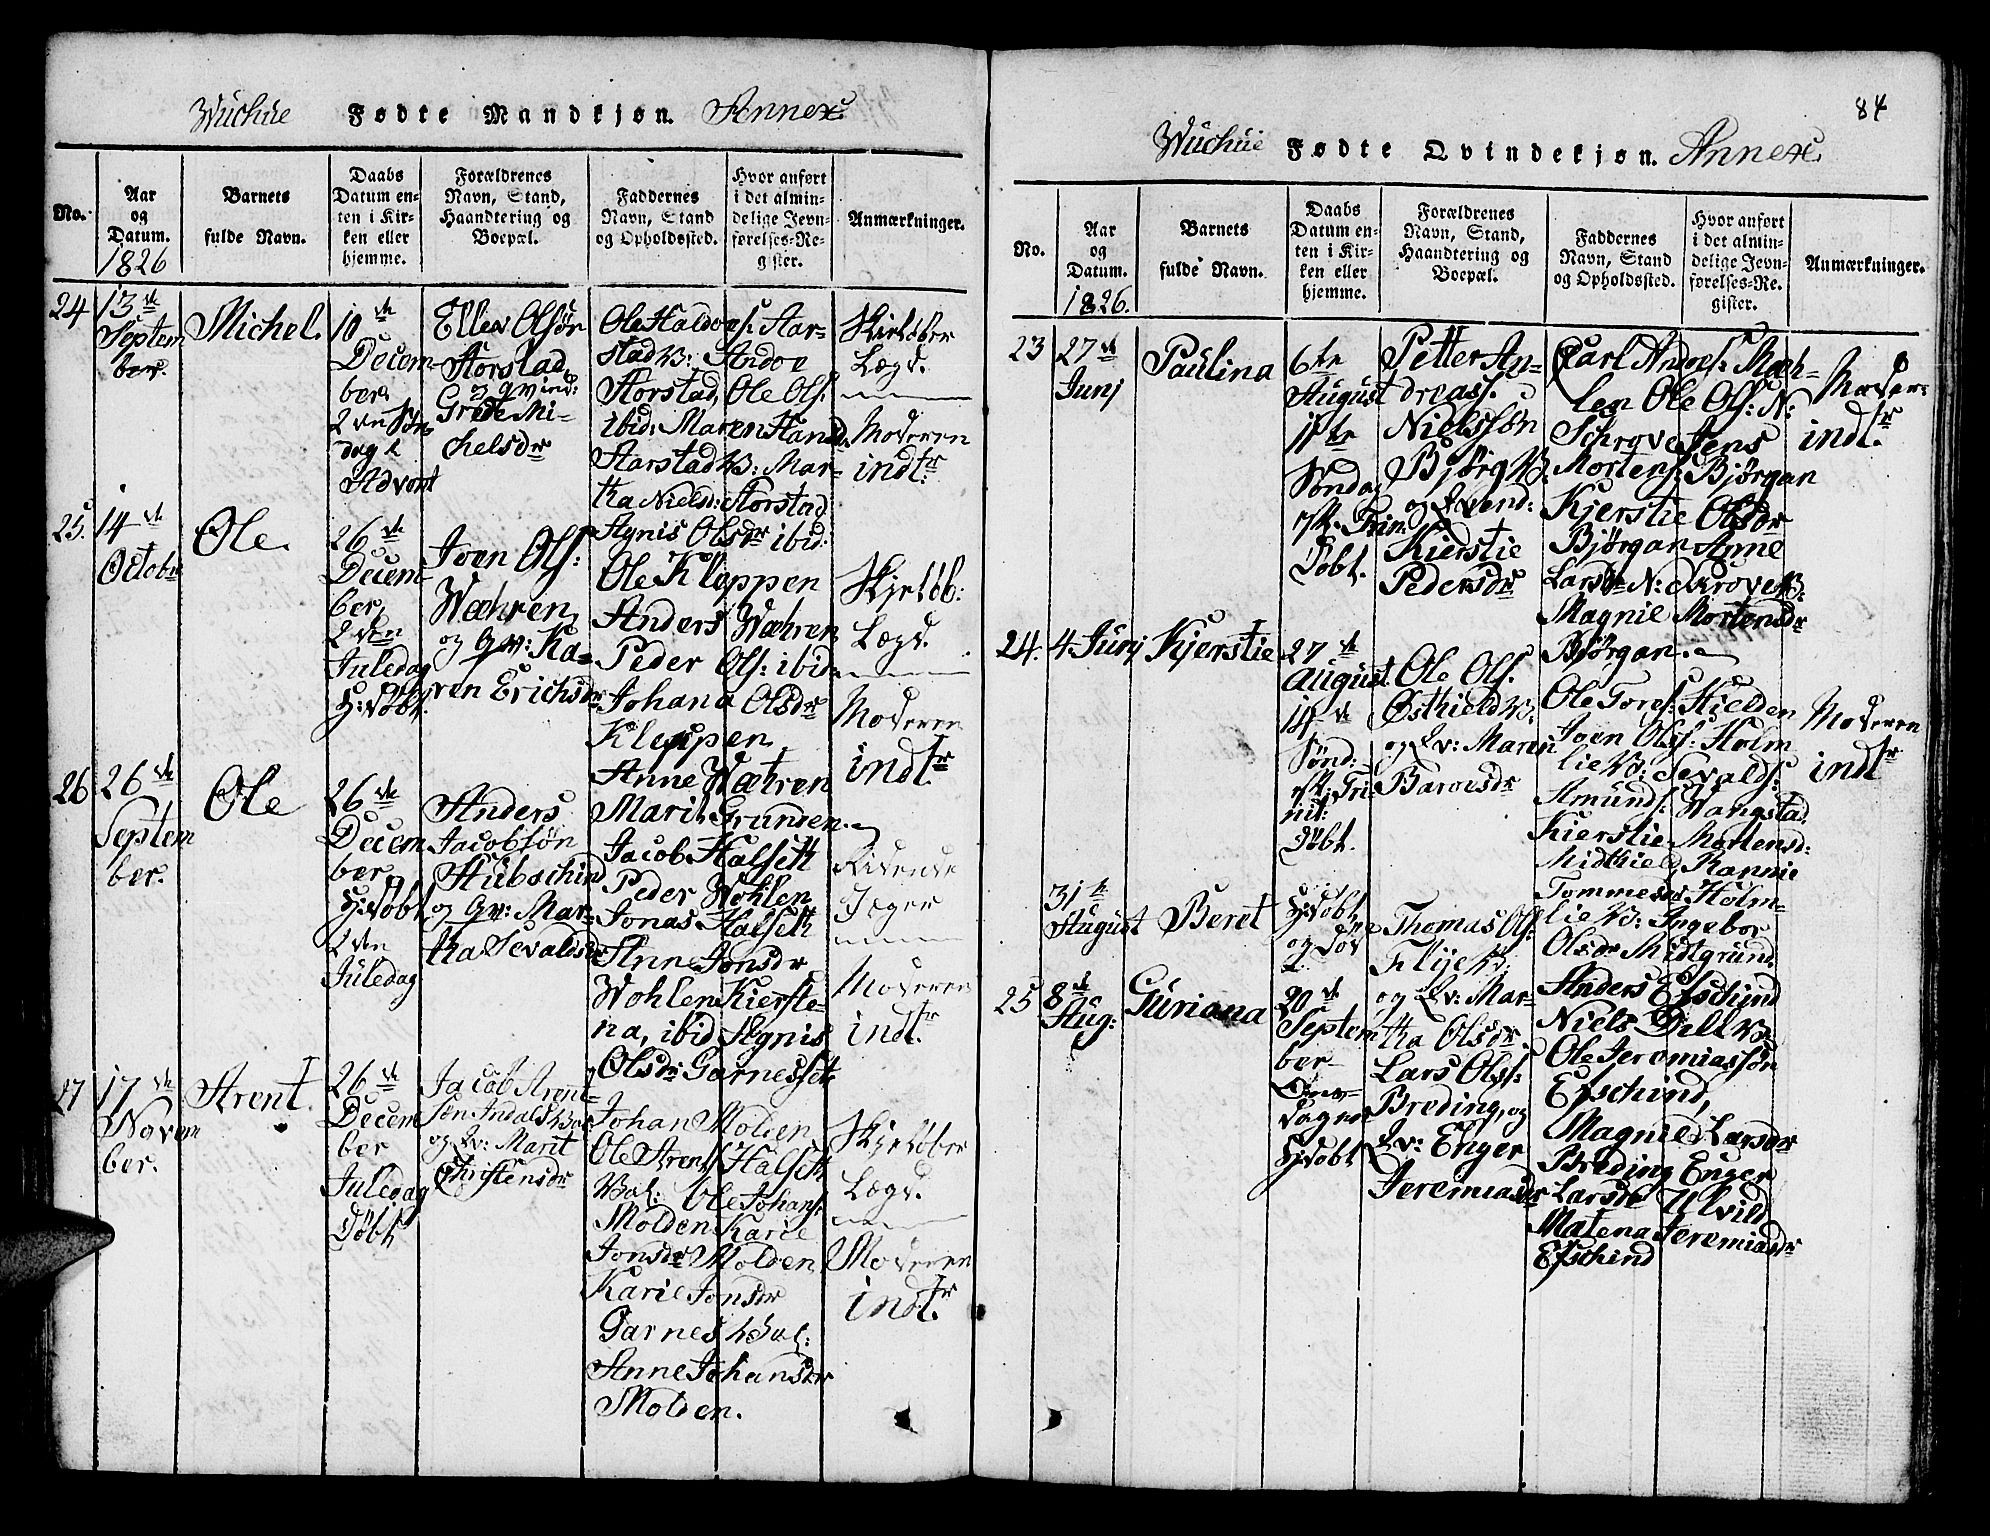 Wuchue Fødte Mandkjøn. Annex
No.
Aar
og
Datum.
1826
Barnets
fulde Navn.
Daabs
Datum en-
ten i Kir-
ken eller
hjemme.
Forældrenes
Navn, Stand,
Haandtering og
Boepæl.
Faddernes
Navn, Stand
og Opholdssted.
Hvor anført
i det almin-
delige Jevn-
førelses-Re-
gister.
Anmærkninger.
24
13de
Septem
ber.
Michel.
10de
Decem
ber.
2den Søn
dag i
Advent
Ellev Olsøn
Storstad,
og Qvind:
Grete Mi-
chelsdr
Ole Haldos. Aar-
stad V: Andoe
Storstad, Ole Ols.
ibid: Maren Hansd
Aarstad V: Mar-
tha Nielsd: Storstad
Agnis Olsdr ibid:
Skieløber
Lægd.
Moderen
indtr
25.
14de
Octobr
Ole.
26de
Decem-
ber,
2den
Juledag
H:døbt.
Joen Ols:
Wæhren,
og Qv: Ka-
ren Erichsdr
Ole Kleppen
Anders Wæhren
Peder Ols: ibid
Johana Olsdr
Kleppen
Anne Wæhren
Marit Grunden.
Skieløb:
Lægd.
Moderen
indtr
26
26de
Septem
ber.
Ole
26de
Decem
ber
H:døbt
2den
Juledag
Anders
Jacobsøn
Hübschind
og Qv: Mar-
tha Sevaldsdr
Jacob Halseth
Peder Wohlen
Jonas Halseth
Anne Jonsdr
Wohlen, Kierste-
na, ibid Agnis
Olsdr Garnesset
Ridende
Jæger
Moderen
indtr.
27
17de
Novem
ber.
Arent.
26de
Decem
ber
Juledag
Døbt
Jacob Arent-
sen Indals Val
og Qv: Marit
Christensdr
Johan Molden
Ole Arens Halseth
Val: Ole Johans.
Molden Karie
Jonsdr Molden
Karie Jonsdr
Garnes hval:
Anne Johansdr
Molden.
Skieløber
Lægd.
Moderen
indtr.
84
Wuchue Fødte Qvindekjøn. Annex.
No.
Aar
og
Datum.
1826.
Barnets
fulde Navn.
Daabs
Datum en-
ten i Kir-
ken eller
hjemme.
Forældrenes
Navn, Stand,
Haandtering og
Boepæl.
Faddernes
Navn, Stand
og Opholdssted.
Hvor anført
i det almin-
delige Jevn-
førelses-Re-
gister.
Anmærkninger.
23
27de
Junj
Paulina
6te
August
11te
Søndag
eft. Trin.
Døbt.
Petter An-
dreas.
Nielssøn
Bjørg V:
og Qvend:
Kierstie
Pedersdr
Carl Andos: Mæh-
len Ole Ols: N:
Schrove Jens
Mortens: Bjørgan
Kjerstie Olsdr
Bjørgan Anne
Larsdr N: Skrove V:
Magnie Mortensdr
Bjørgan.
Moder
indtr.
24.
4 Junj
Kjerstie
27de
August
14de
Sønd:
eft. Tri
nit:
Døbt.
Ole Ols.
Østhield V:
og Qv: Maren
Baroesdr
Ole Tores: Hielden
Joen Ols: Holm
lie V: Sevalds.
Amunds. Wangstad
Kierstie Mortensd:
Midthield, Rannie
Tommesdr Holm-
lie V: Ingebor
Olsdr Midtgrund.
Moderen
indtr
31te
August
Beret
H:døbt
og Død
Thomas Ols.
Flije V:
og Qv: Mar-
tha Olsdr.
25
8de
Aug:
Guriana
20de
Septem
ber
H:døbt
Lars Ols:
Breding, og
Qv: Enger
Jeremiasdr
Anders Eschind
Niels Dill V:
Ole Jeremiassøn
Eschind,
Magnie Larsdr
Breding Enger
Larsdr Ulvild
Matena Jeremiasdr
Eschind